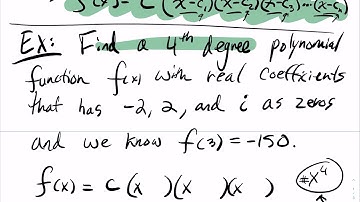 f(x) = C (x-c₁)(x-c₂)(x-c₃)...(x-cₙ)
Ex: Find a 4th degree polynomial
function f(x) with real coefficients
that has -2, 2, and i as zeros
and we know f(3) = -150.
f(x) = C (x )(x )(x ) #x⁴